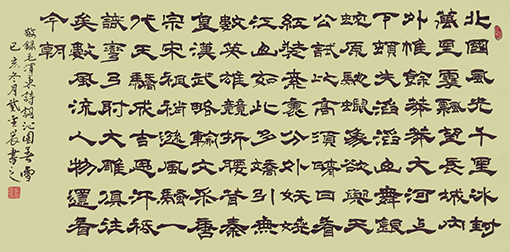 北國風光千里冰封
萬里雪飄望長城內
外惟餘莽莽大河上
下頓失滔滔山舞銀
蛇原馳蠟象欲與天
公試比高須晴日看
紅裝素裹分外妖嬈
江山如此多嬌引無
數英雄競折腰昔秦
皇漢武略輸文采唐
宗宋祖稍遜風騷一
代天驕成吉思汗祗
識彎弓射大雕俱往
矣數風流人物還看
今朝
敬錄毛澤東詩詞沁園春雪
己亥冬月書之